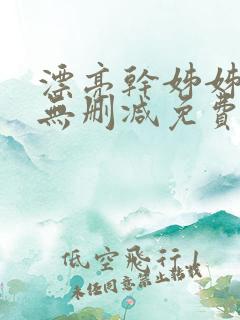 漂亮幹姊姊
無刪減免費
低空飛行！
未經同意禁止轉載